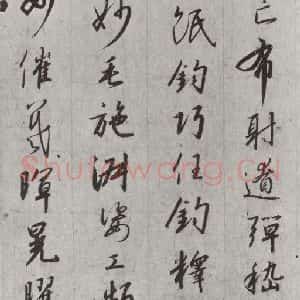 亡布射遼彈嵇
紙鈞巧任鈞釋
妙毛施淑姿工顰
妙催羲暉晃曜
ShufaWang.CN